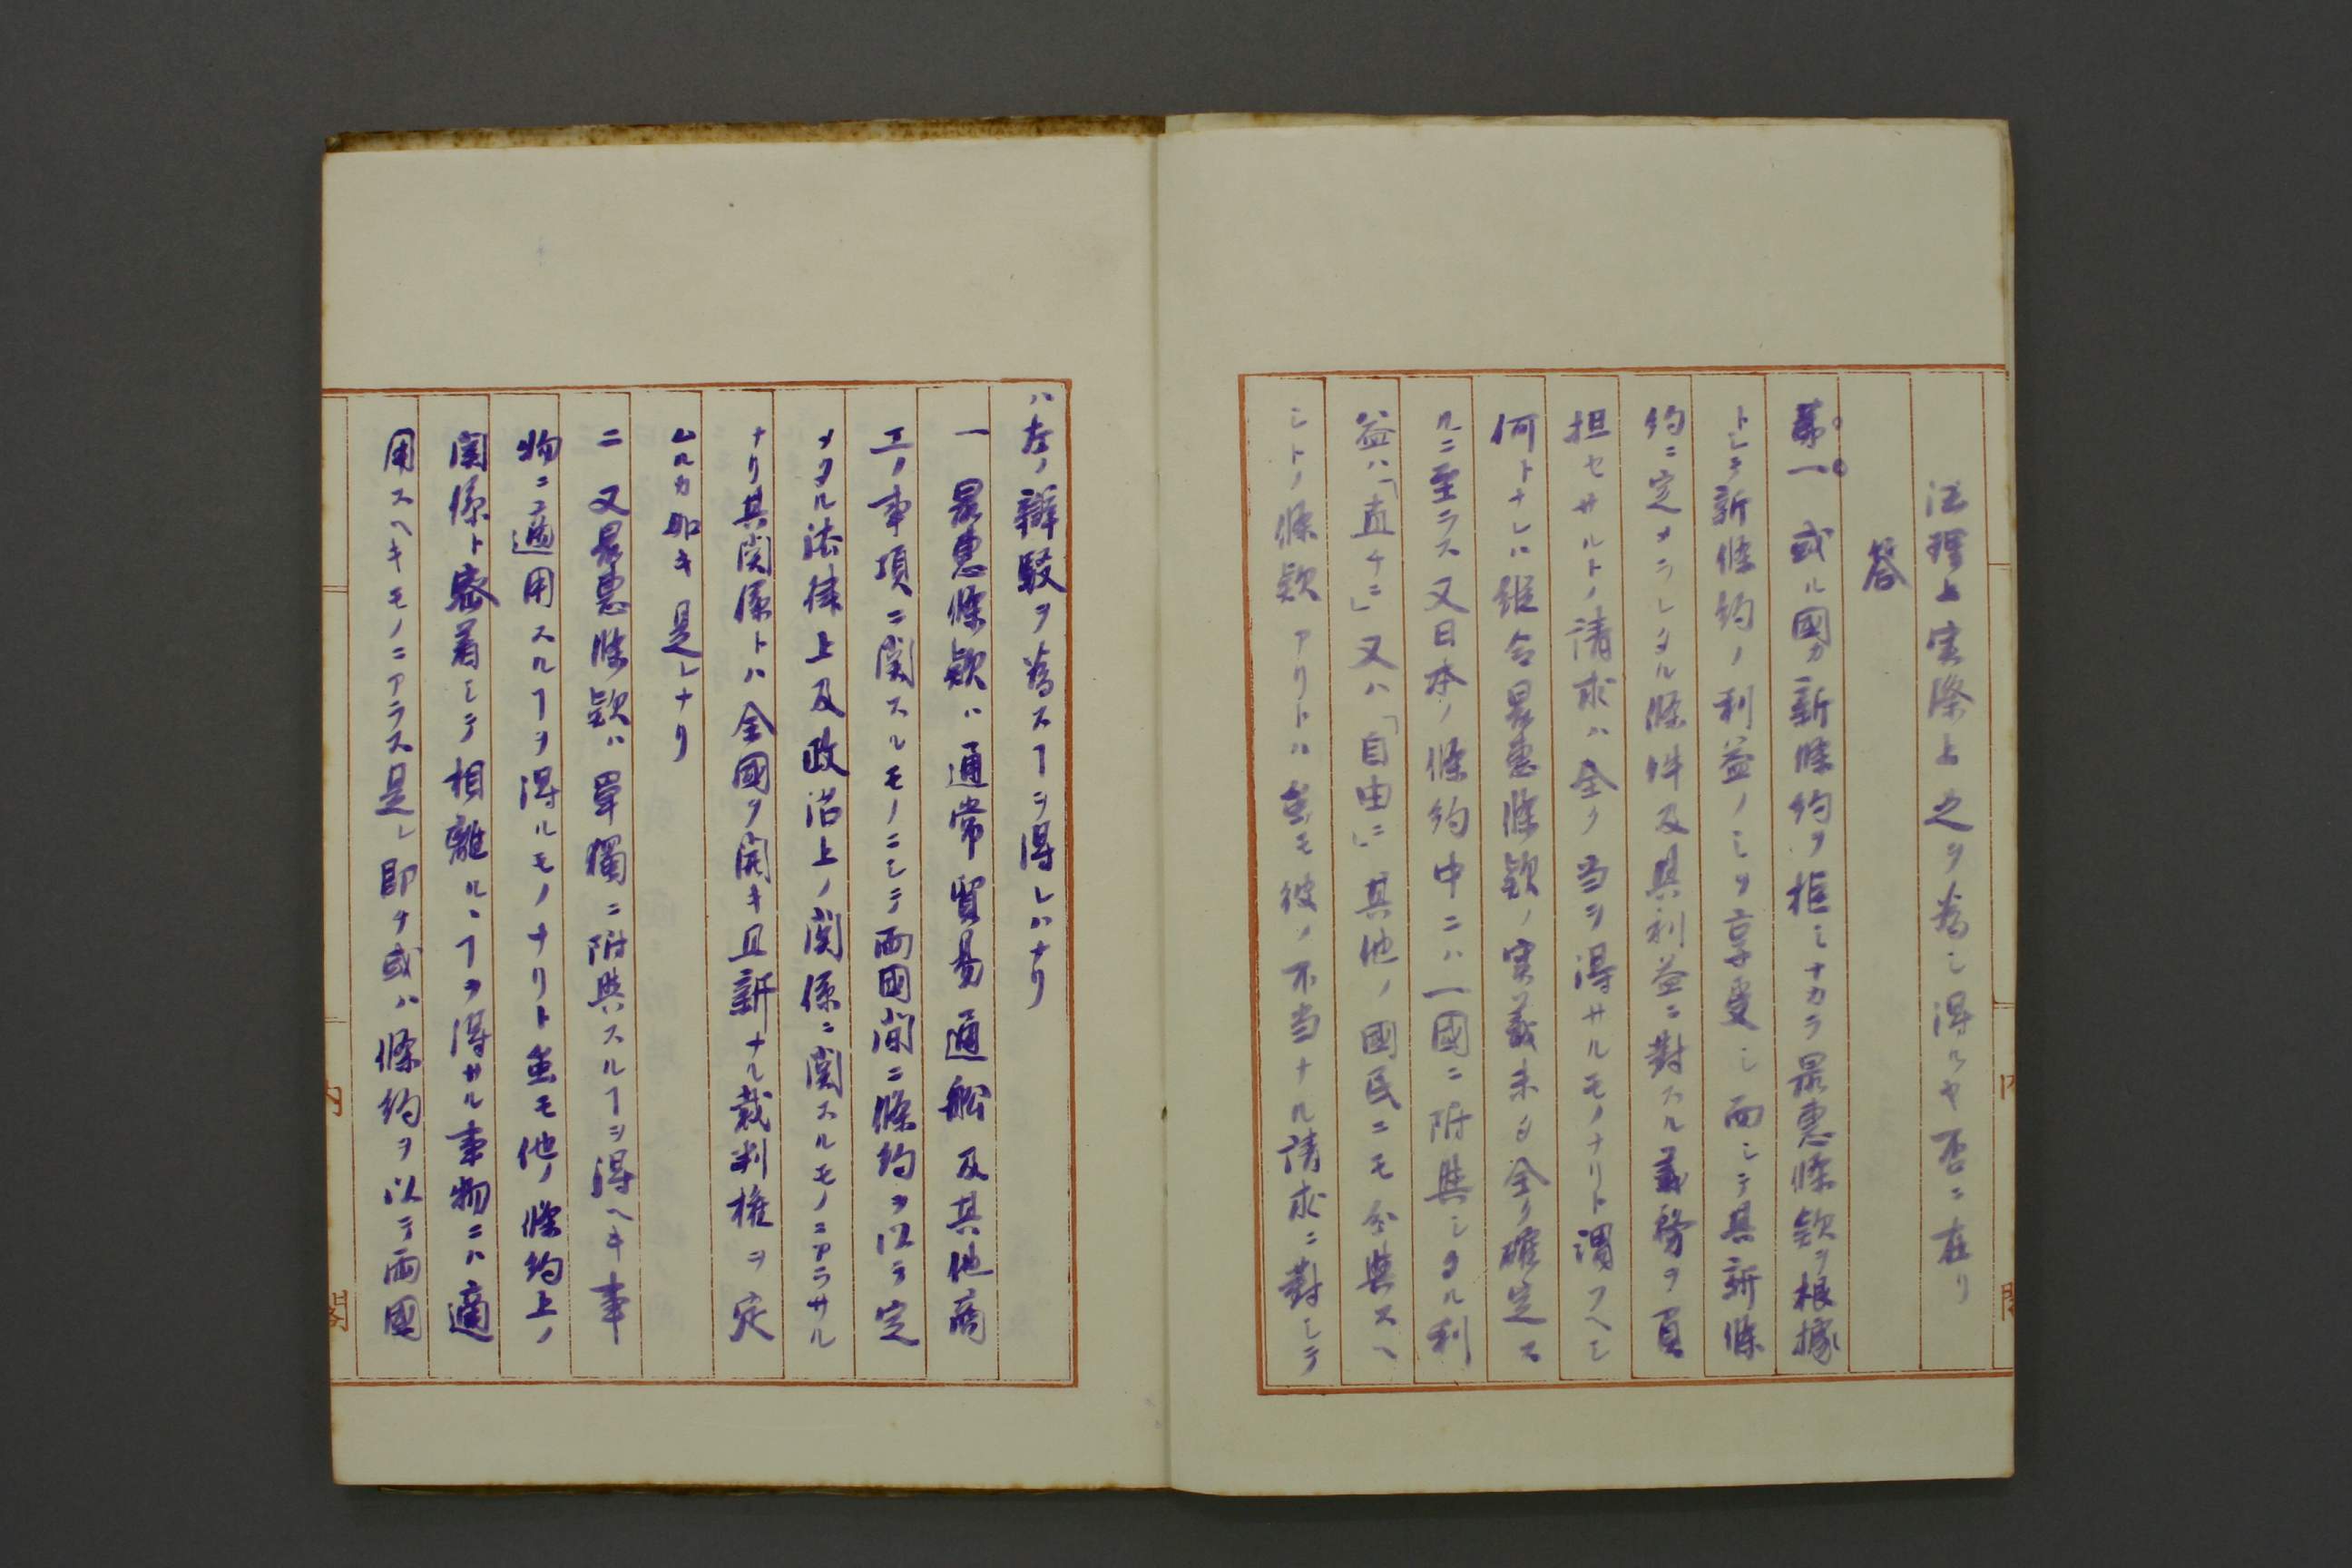 法理上実際上之ヲ為シ得ルヤ否ニ在リ
答
第一。或ル國カ新條約ヲ拒ミナカラ最惠條欵ヲ根據
トシテ新條約ノ利益ノミヲ享受シ而シテ其新條
約ニ定メラレタル條件及其利益ニ對スル義務ヲ負
担セサルトノ請求ハ全ク当ヲ得サルモノナリト謂フヘシ
何トナレハ縦令最惠條欵ノ実義未タ全ク確定ス
ルニ至ラス又日本ノ條約中ニハ一國ニ附與シタル利
益ハ「直チニ」又ハ「自由ニ」其他ノ國民ニモ分與スヘ
シトノ條欵アリトハ虽モ彼ノ不当ナル請求ニ對シテ
ハ左ノ辯駁ヲ為スヿヲ得レハナリ
一 最惠條欵ハ通常貿易通舩及其他商
工ノ事項ニ関スルモノニシテ両國間ニ條約ヲ以テ定
メタル法律上及政治上ノ関係ニ関スルモノニアラサル
ナリ其関係トハ全國ヲ開キ且新ナル裁判権ヲ定
ムルカ如キ是レナリ
二 又最惠條欵ハ單獨ニ附與スルヿヲ得ヘキ事
物ニ適用スルヿヲ得ルモノナリト虽モ他ノ條約上ノ
関係ト密着シテ相離ルヽヿヲ得サル事物ニハ適
用スヘキモノニアラス是レ即チ或ハ條約ヲ以テ両國
内
閣
内
閣